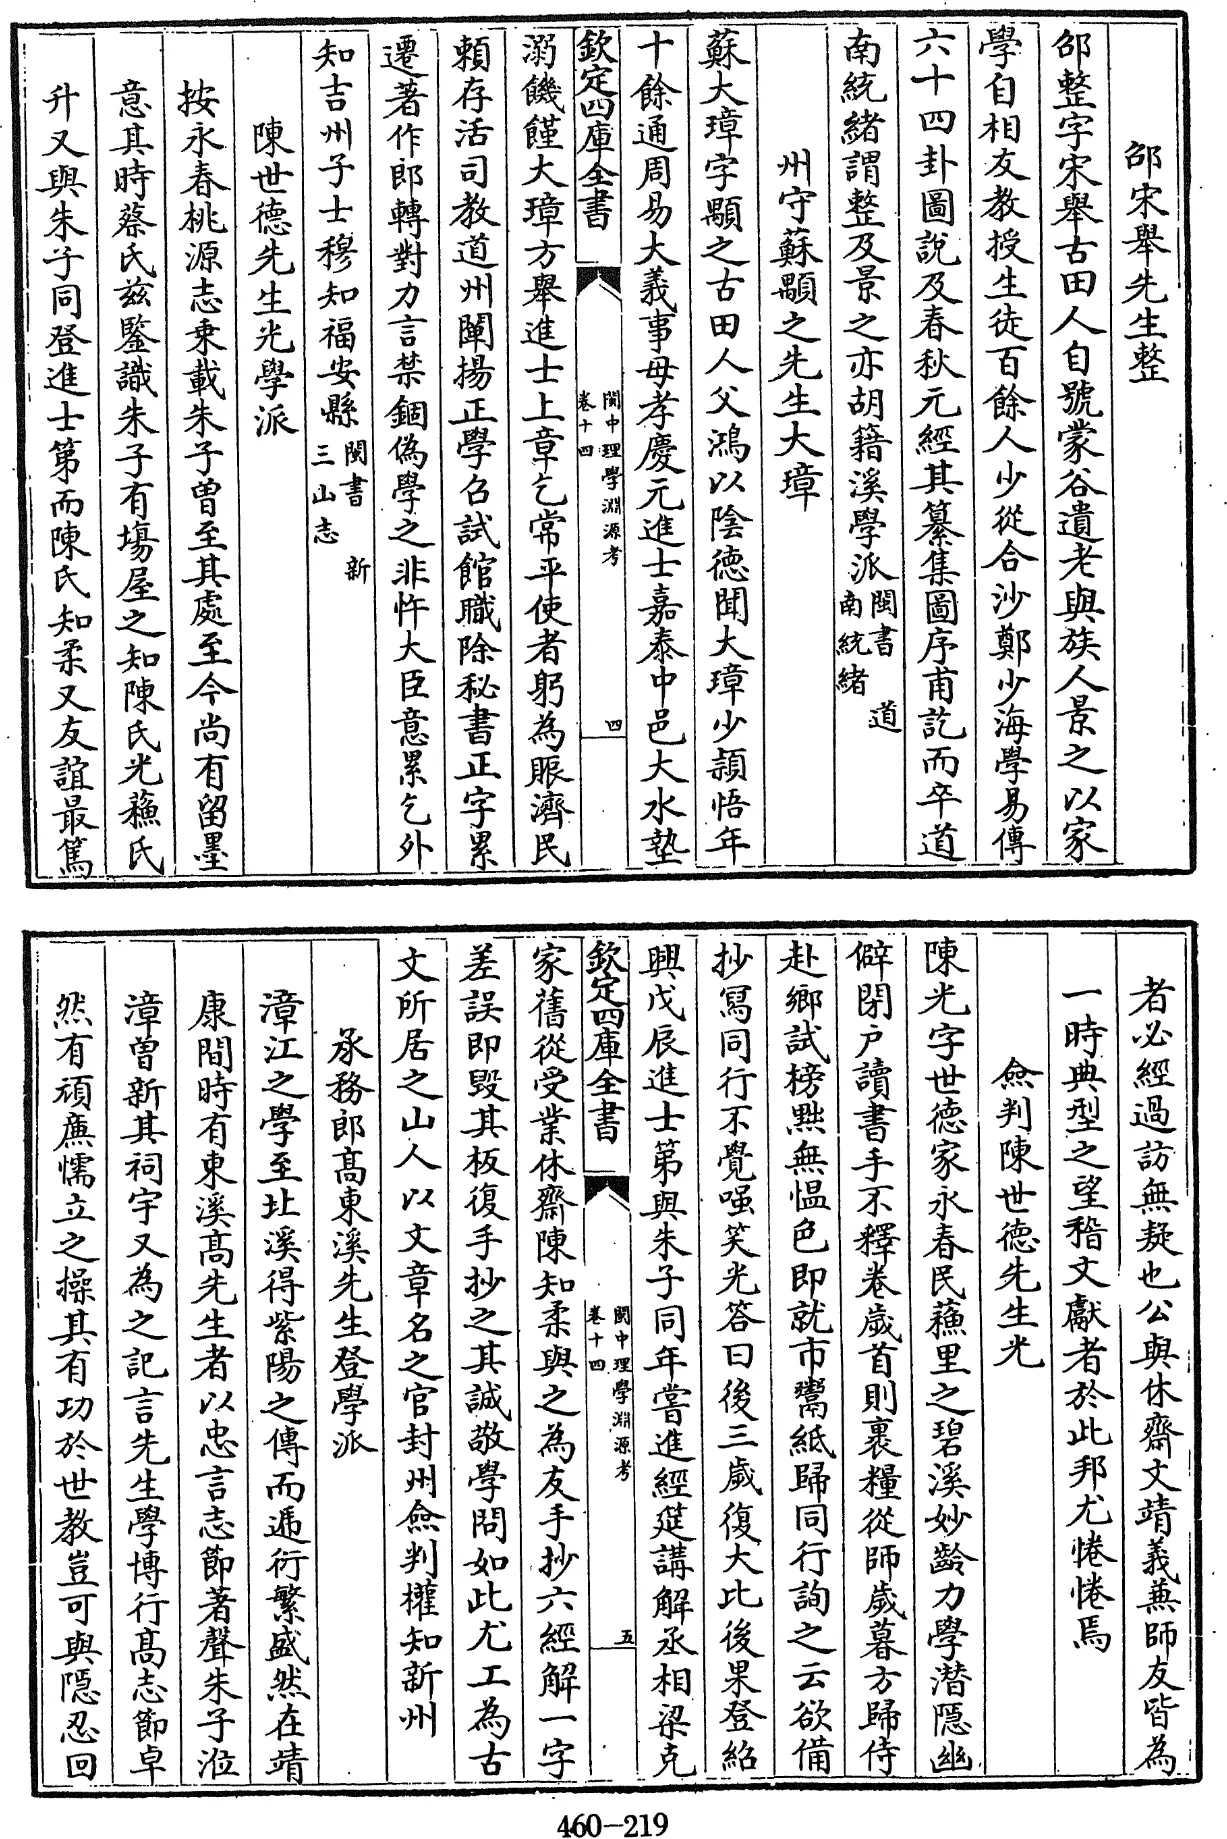 邵宋舉先生整
邵整字宋舉古田人自號蒙谷遺老與族人景之以家
學自相友教授生徒百餘人少從合沙鄭少海學易傳
六十四卦圖說及春秋元經其纂集圖序甫訖而卒道
南統緒謂整及景之亦胡籍溪學派閩書 道南統緒
州守蘇顯之先生大璋
蘇大璋字顯之古田人父鴻以陰德聞大璋少穎悟年
十餘通周易大義事母孝慶元進士嘉泰中邑大水墊
欽定四庫全書 閩中理學淵源考 卷十四 四
溺饑饉大璋方舉進士上章乞常平使者躬為賑濟民
賴存活司教道州闡揚正學召試館職除秘書正字累
遷著作郎轉對力言禁錮偽學之非忤大臣意累乞外
知吉州子士穆知福安縣閩書 新三山志
陳世德先生光學派
按永春桃源志乘載朱子曽至其處至今尚有留墨
意其時蔡氏茲鑒識朱子有場屋之知陳氏光蘓氏
升又與朱子同登進士第而陳氏知柔又友誼最篤
者必經過訪無疑也公與休齋文靖義兼師友皆為
一時典型之望稽文獻者於此邦尤惓惓焉
僉判陳世德先生光
陳光字世德家永春民蘓里之碧溪妙齡力學潜隱幽
僻閉户讀書手不釋卷歲首則裹糧從師歲暮方歸侍
赴鄉試榜㸃無愠色即就市鬻紙歸同行詢之云欲備
抄寫同行不覺嗤笑光答曰後三歲復大比後果登紹
興戊辰進士第與朱子同年嘗進經筵講解丞相梁克
欽定四庫全書 閩中理學淵源考 卷十四 五
家舊從受業休齋陳知柔與之為友手抄六經解一字
差誤即毁其板復手抄之其誠敬學問如此尤工為古
文所居之山人以文章名之官封州僉判權知新州
承務郎高東溪先生登學派
漳江之學至北溪得紫陽之傳而遞衍繁盛然在靖
康間時有東溪高先生者以忠言志節著聲朱子涖
漳曽新其祠宇又為之記言先生學博行高志節卓
然有頑廉懦立之操其有功於世教豈可與隠忍回
460-219